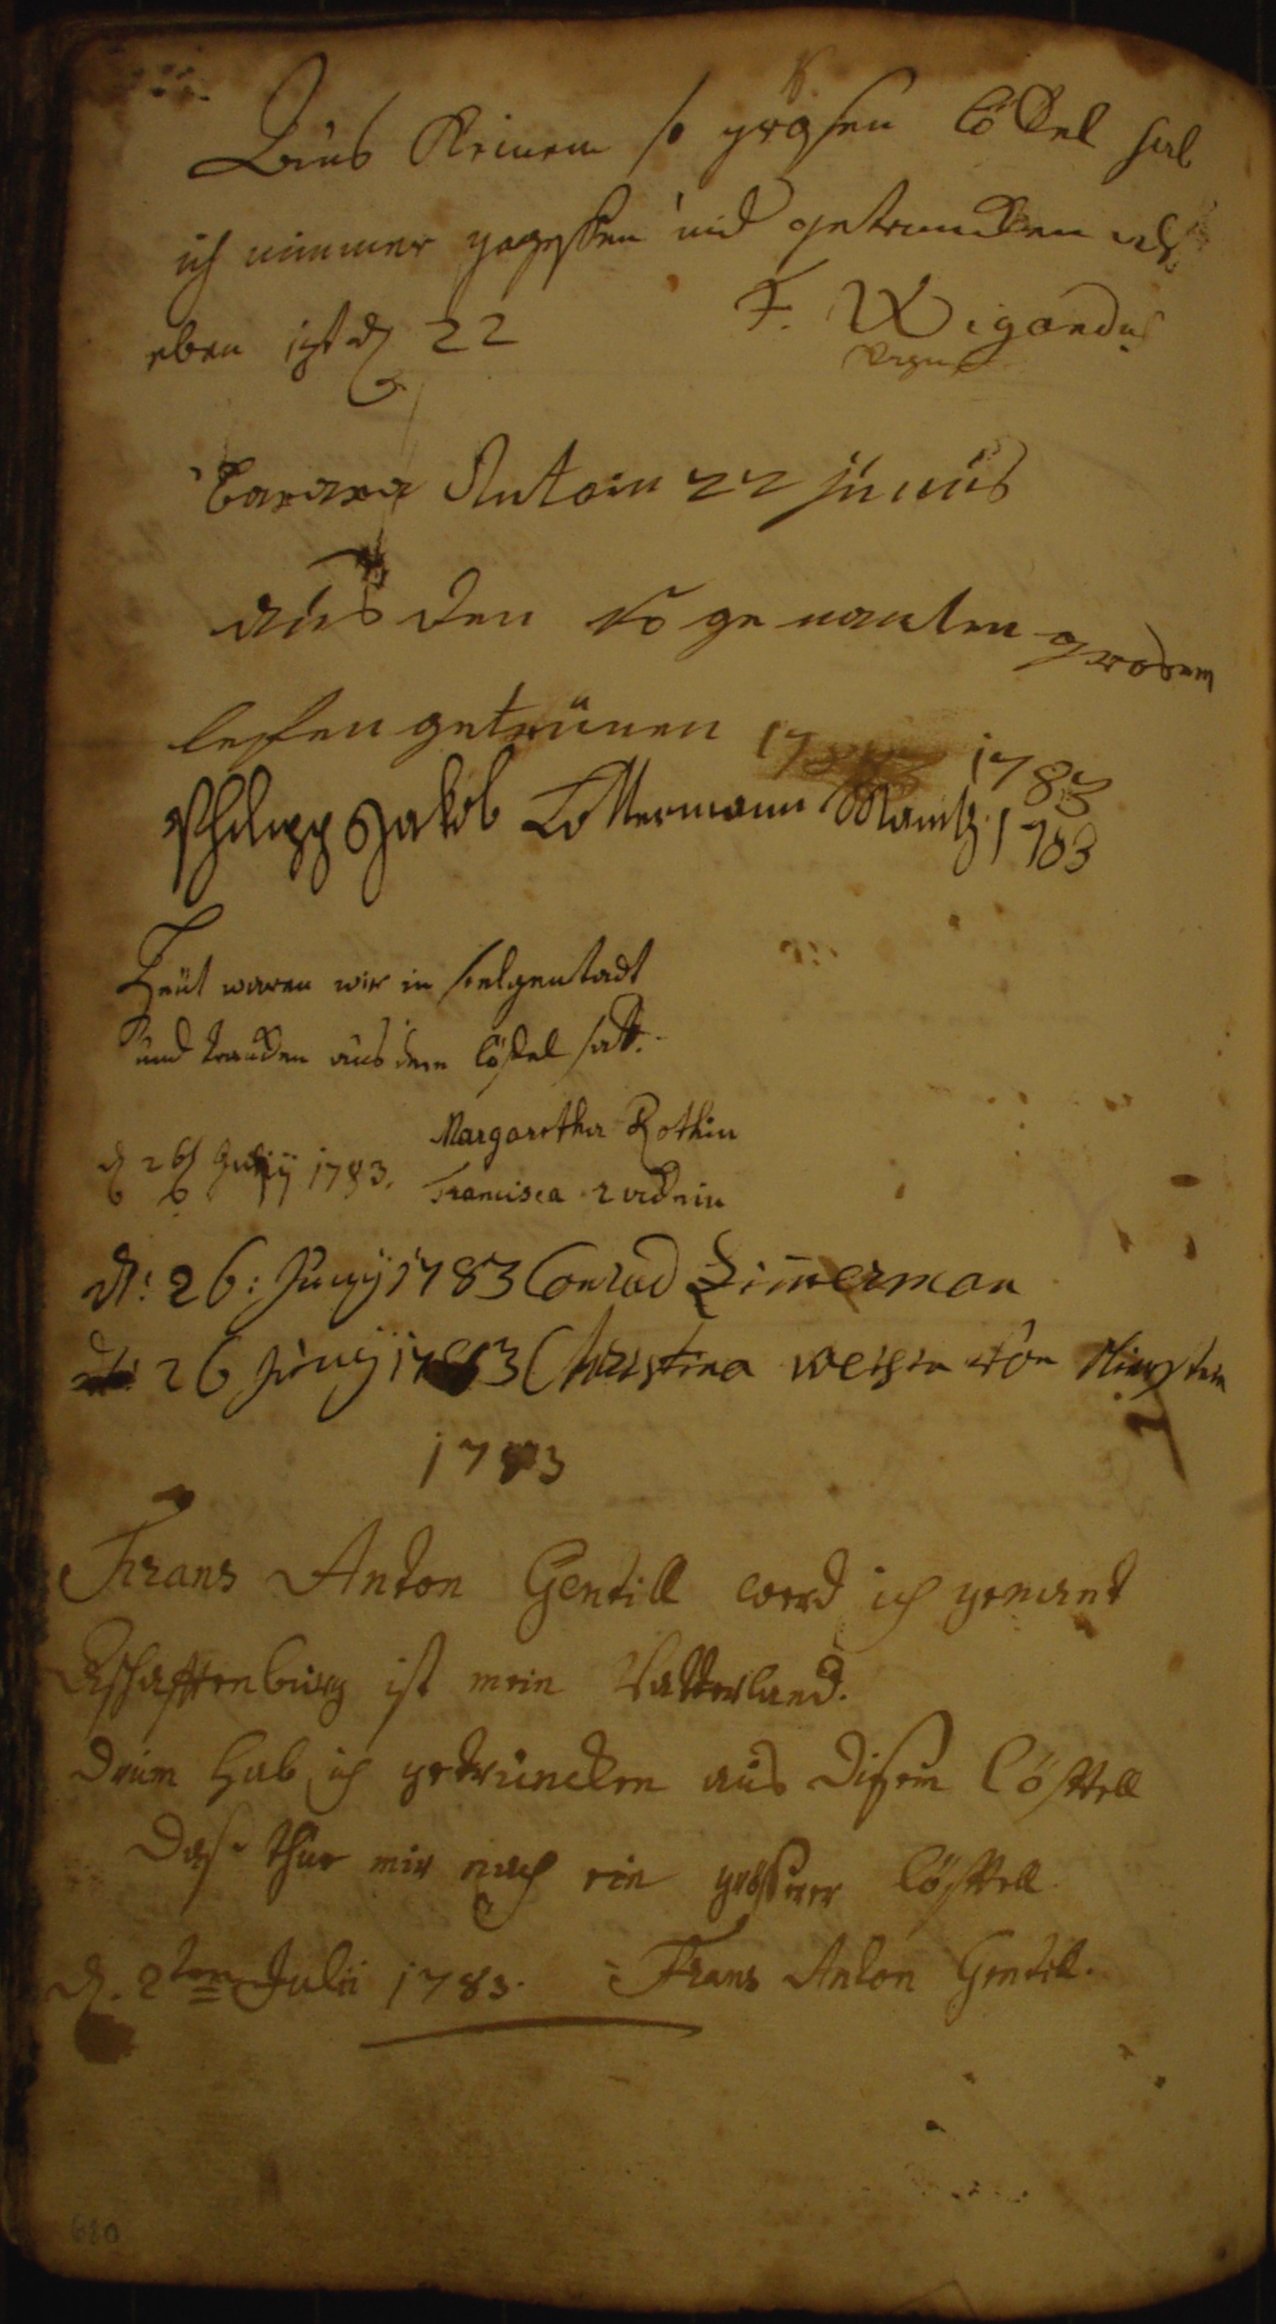 Aus Keinem so grosen löffel hab
ich nimmer gegessen und getruncken als
eben ist d 22
F. Wigandus
Barara Antoin 22 junius
aus den so genanten grosem
leffen getrünen 1783
Philipp Jakob Lottermann Maintz 1783
Heut waren wir in seelgenstadt
und trancken aus dem löffel satt.
Margaretha Rothin
d 26 Junij 1783. Francisca
d: 26: Junij 1783 Conrad Zimmerman
26 Junij 1783 Christina von Nierstein
1783
Frans Anton Gentill werd ich genant
Aschaffenburg ist mein Vatterland.
Drum Hab ich getruncken aus disem löffell
Das thue mir nach ein grosserer löffell.
d. 2ten Julii 1783. Frans Anton Gentill.
610